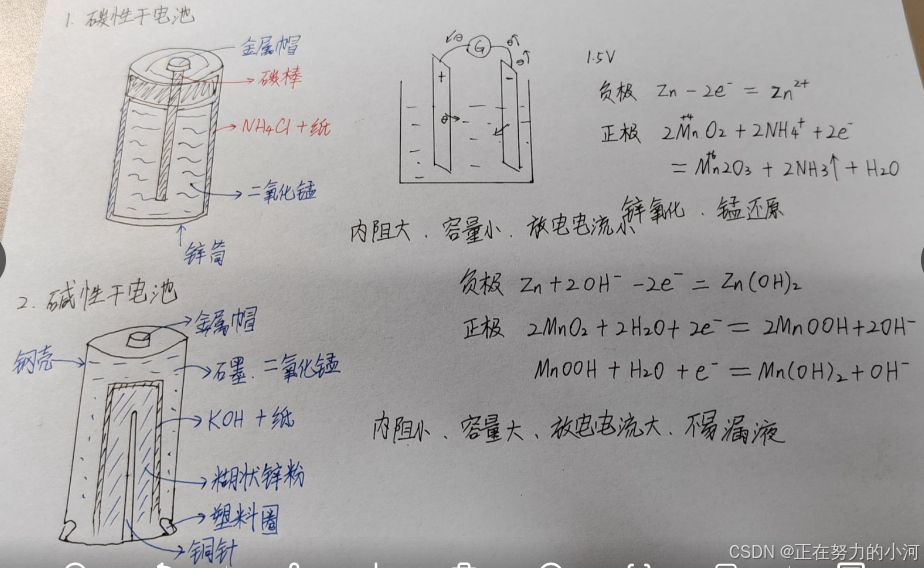 1. 碳性干电池
金属帽
碳棒
NH4Cl + 纸
二氧化锰
锌筒
G
e
e
e
+
-
e
1.5V
负极 Zn - 2e⁻ = Zn²⁺
正极 2MnO2 + 2NH4⁺ + 2e⁻
+4
= Mn2O3 + 2NH3↑ + H2O
锌氧化、锰还原
内阻大、容量小、放电电流小
2. 碱性干电池
金属帽
钢壳
石墨、二氧化锰
KOH + 纸
糊状锌粉
塑料圈
铜针
负极 Zn + 2OH⁻ - 2e⁻ = Zn(OH)2
正极 2MnO2 + 2H2O + 2e⁻ = 2MnOOH + 2OH⁻
MnOOH + H2O + e⁻ = Mn(OH)2 + OH⁻
内阻小、容量大、放电电流大、不易漏液
CSDN @正在努力的小河